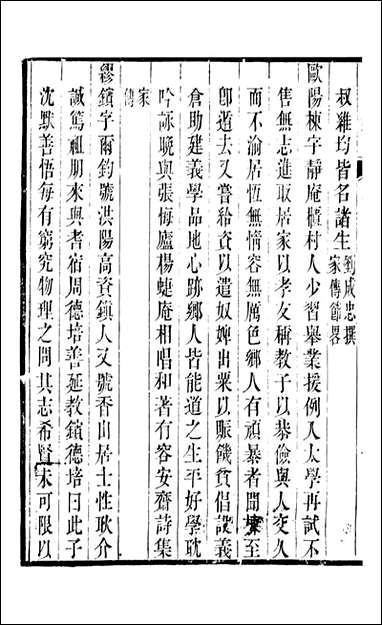 叔雞均皆名諸生劉成忠撰
家傳節畧
歐陽棟字靜庵櫃村人少習舉業援例入太學再試不
售無志進取居家以孝友稱教子以恭儉與人交久
而不渝居恆無惰容無厲色鄉人有頑暴者聞棟至
卽遁去又嘗給資以遣奴婢出粟以賑饑貧倡設義
倉助建義學品地心跡鄉人皆能道之生平好學耽
吟詠晚與張悔廬楊蜨庵相唱和著有容安齋詩集
家
傳
繆鑌字爾鈞號洪陽高資鎮人又號香山居士性耿介
誠篤祖期來與耆宿周德培善延教鑌德培曰此子
沈默善悟每有窮究物理之問其志希賢未可限以